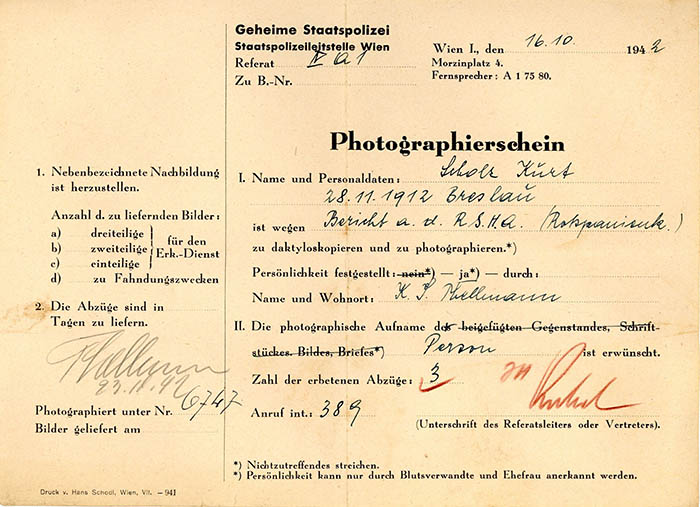 Geheime Staatspolizei
Staatspolizeileitstelle Wien
Referat IV A 1
Zu B.-Nr.
Wien I., den 16.10. 1942
Morzinplatz 4.
Fernsprecher: A 1 75 80.
Photographierschein
1. Nebenbezeichnete Nachbildung
ist herzustellen.
Anzahl d. zu liefernden Bilder:
a) dreiteilige
b) zweiteilige
c) einteilige
für den
Erk.-Dienst
d) zu Fahndungszwecken
2. Die Abzüge sind in
Tagen zu liefern.
23.10.42
Photographiert unter Nr. 6747
Bilder geliefert am
I. Name und Personaldaten: Scholz Kurt
28.11.1912 Breslau
ist wegen Bericht a. d. R.S.H.A. (Rotspanienk.)
zu daktyloskopieren und zu photographieren.*)
Persönlichkeit festgestellt: nein*) — ja*) — durch:
Name und Wohnort: K. S.
II. Die photographische Aufname des beigefügten Gegenstandes, Schrift-
stückes, Bildes, Briefes*) Person ist erwünscht.
Zahl der erbetenen Abzüge: 3
Anruf int.: 389
(Unterschrift des Referatsleiters oder Vertreters).
*) Nichtzutreffendes streichen.
*) Persönlichkeit kann nur durch Blutsverwandte und Ehefrau anerkannt werden.
Druck v. Hans Schodl, Wien, VII. — 941